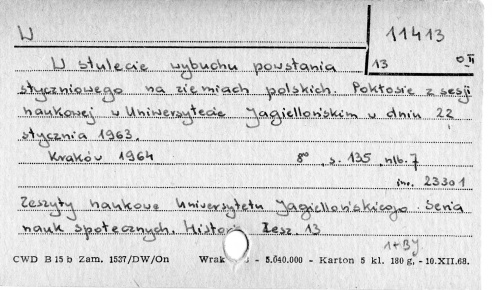 W
11413
13 OII
W stulecie wybuchu powstania
styczniowego na ziemiach polskich. Pokłosie z sesji
naukowej w Uniwersytecie Jagiellońskim w dniu 22
stycznia 1963.
Kraków 1964 8° s. 135, nlb. 7
inw. 23301
Zeszyty naukowe Uniwersytetu Jagiellońskiego. Seria
nauk społecznych. Historia Zesz. 13
1+BJ
CWD B 15 b Zam. 1537/DW/On Wrak - 5.040.000 - Karton 5 kl. 180 g. - 10.XII.68.